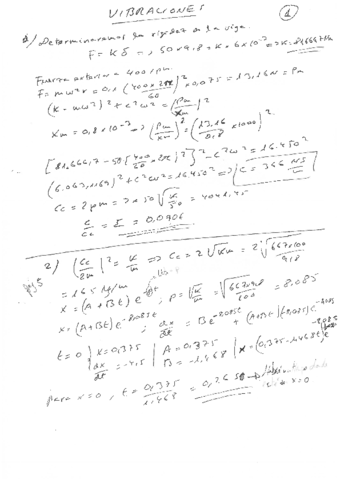 VIBRACIONES
1
1) Determinaremos la rigidez de la viga.
F = Kδ => 50×9,8 = K·6×10⁻³ => K = 81666,7 N/m
Fuerza a 400 rpm.
F = mω²r = 0,1 (400×2π/60)² × 0,075 = 13,16 N = Pm
(K - mω²)² + c²ω² = (Pm/Xm)²
Xm = 0,8×10⁻³ => (Pm/Xm)² = (13,16/0,8 × 1000)²
[81.666,7 - 50(400/60 × 2π)²]² + c²ω² = 16.450²
(6.063,1169)² + c²ω² = 16450² => c = 366 NS/m
Cc = 2pm = 2×50 √(K/50) = 4041,45
c/cc = ξ = 0,0906
pg 5
2) (Cc/2m)² = K/m => Cc = 2√Km = 2√(667×100/9,8)
= 165 kg/m
x = (A+Bt)e^-pt ; p = √(K/m) = √(667×9,8/100) = 8,085
x = (A+Bt)e^-8,085t ; dx/dt = Be^-8,085t + (A+Bt)(-8,085)e^-8,085t
t=0 | x = 0,375 | A = 0,375 | x = (0,375 - 1,468t)e^-8,085t
dx/dt = -4,5 | B = -1,468
para x=0, t = 0,375/1,468 = 0,26 s
x=0